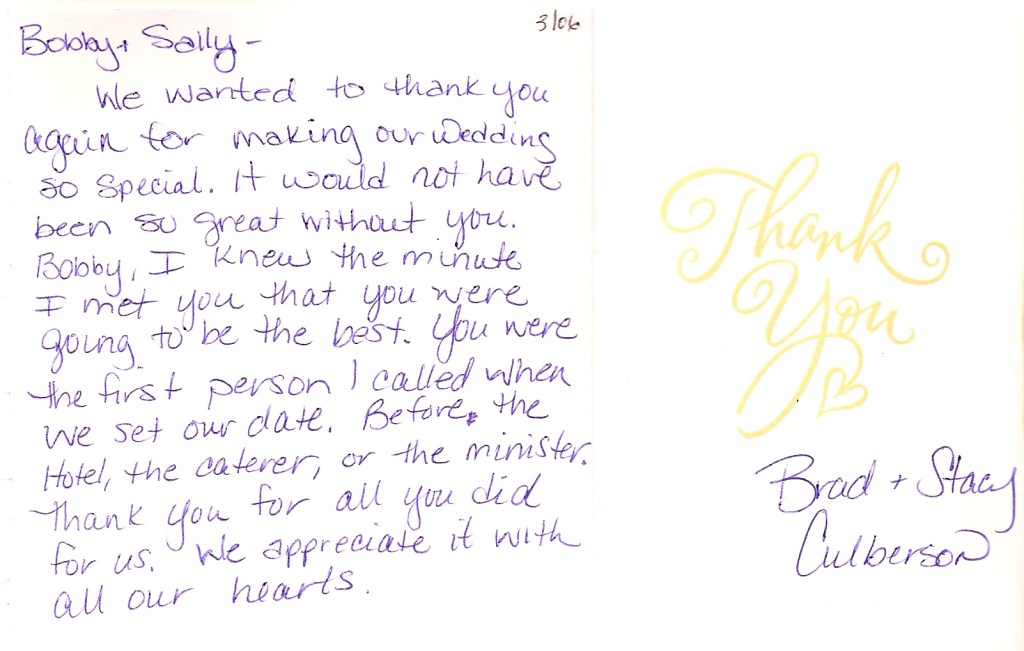 3/06
Bobby + Sally -
We wanted to thank you
again for making our wedding
so special. It would not have
been so great without you.
Bobby, I knew the minute
I met you that you were
going to be the best. You were
the first person I called when
we set our date. Before the
Hotel, the caterer, or the minister.
Thank you for all you did
for us. We appreciate it with
all our hearts.
Thank
You
Brad + Stacy
Culberson